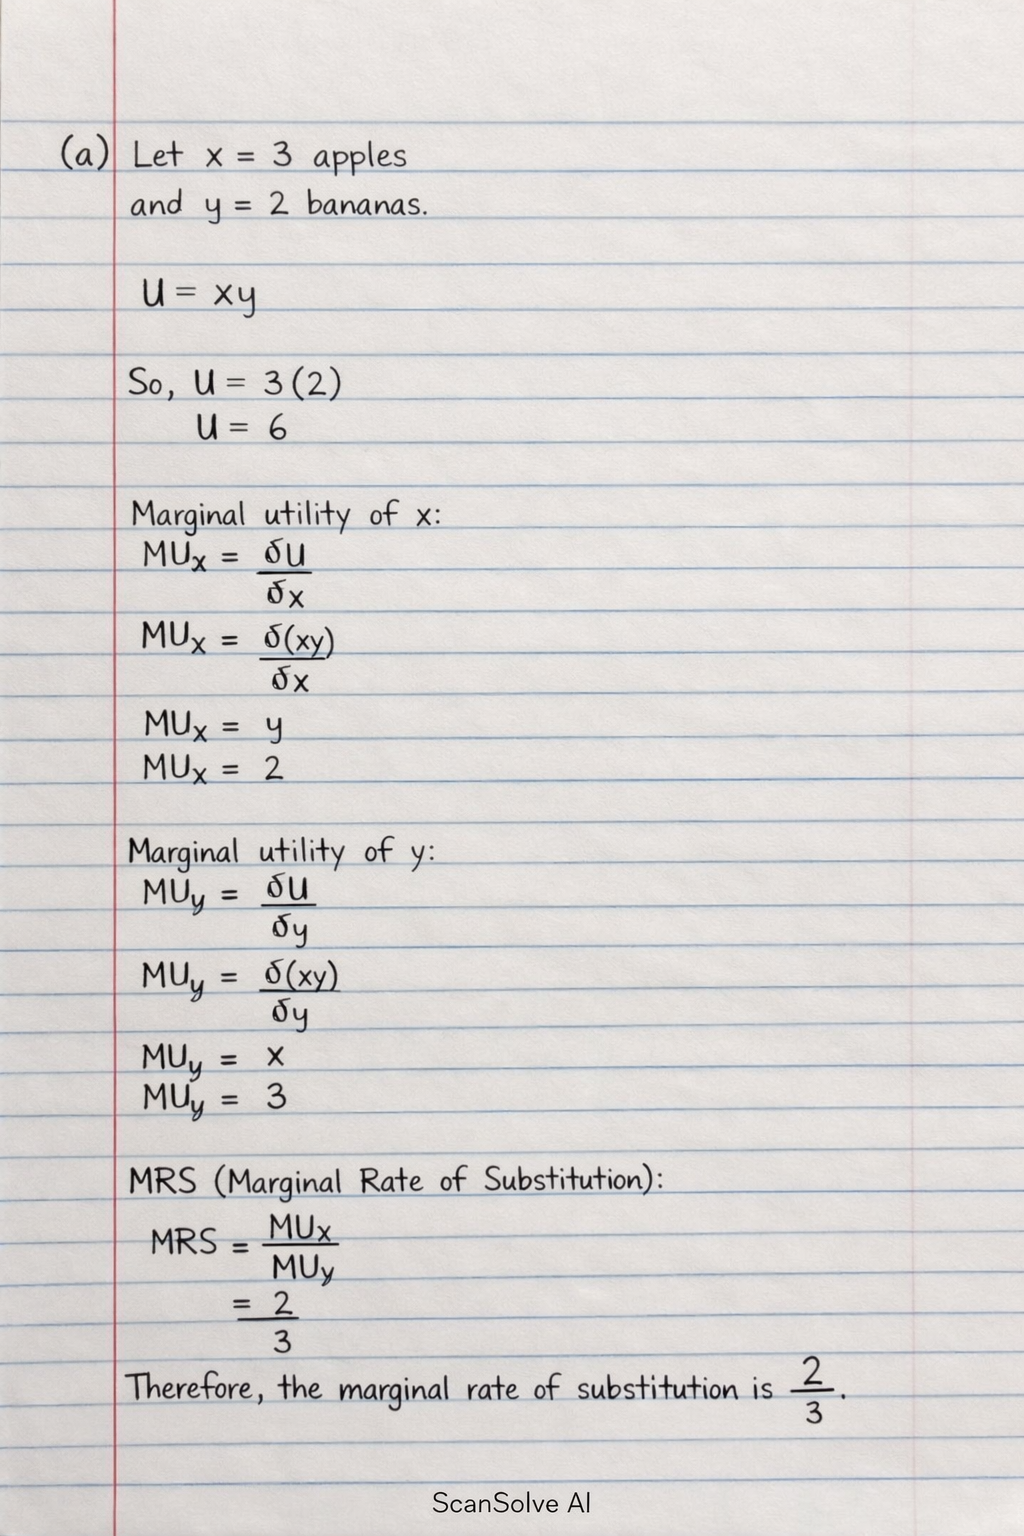 (a) Let x = 3 apples
and y = 2 bananas.
U = xy
So, U = 3(2)
U = 6
Marginal utility of x:
MUx = δU
δx
MUx = δ(xy)
δx
MUx = y
MUx = 2
Marginal utility of y:
MUy = δU
δy
MUy = δ(xy)
δy
MUy = x
MUy = 3
MRS (Marginal Rate of Substitution):
MRS = MUx
MUy
= 2
3
Therefore, the marginal rate of substitution is 2/3.
ScanSolve AI